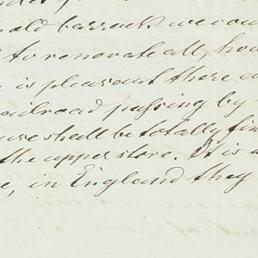 old barrack we cou
to renovate all, how
is pleasant there a
railroad passing by
we shall be totally fin
the upper store. It is a
e, in England they